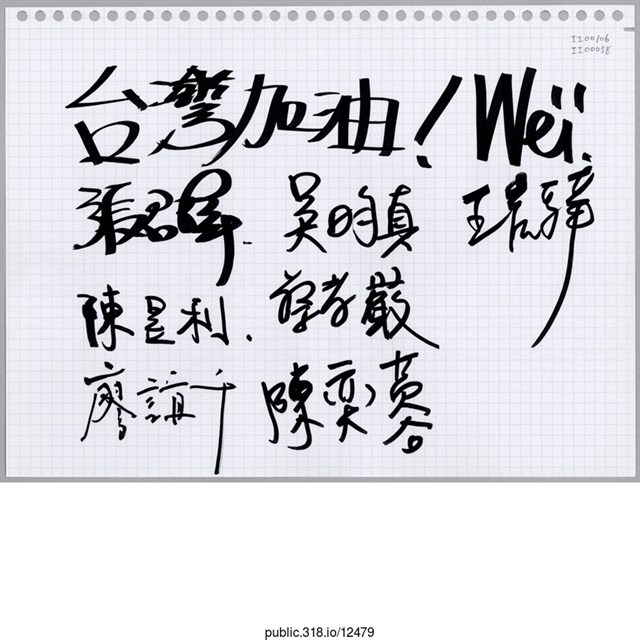 II00106
II00018
台灣加油! Wei.
張君 吳明真 王
陳昱利. 蔡孝嚴
廖誼千 陳奕蓉
public.318.io/12479